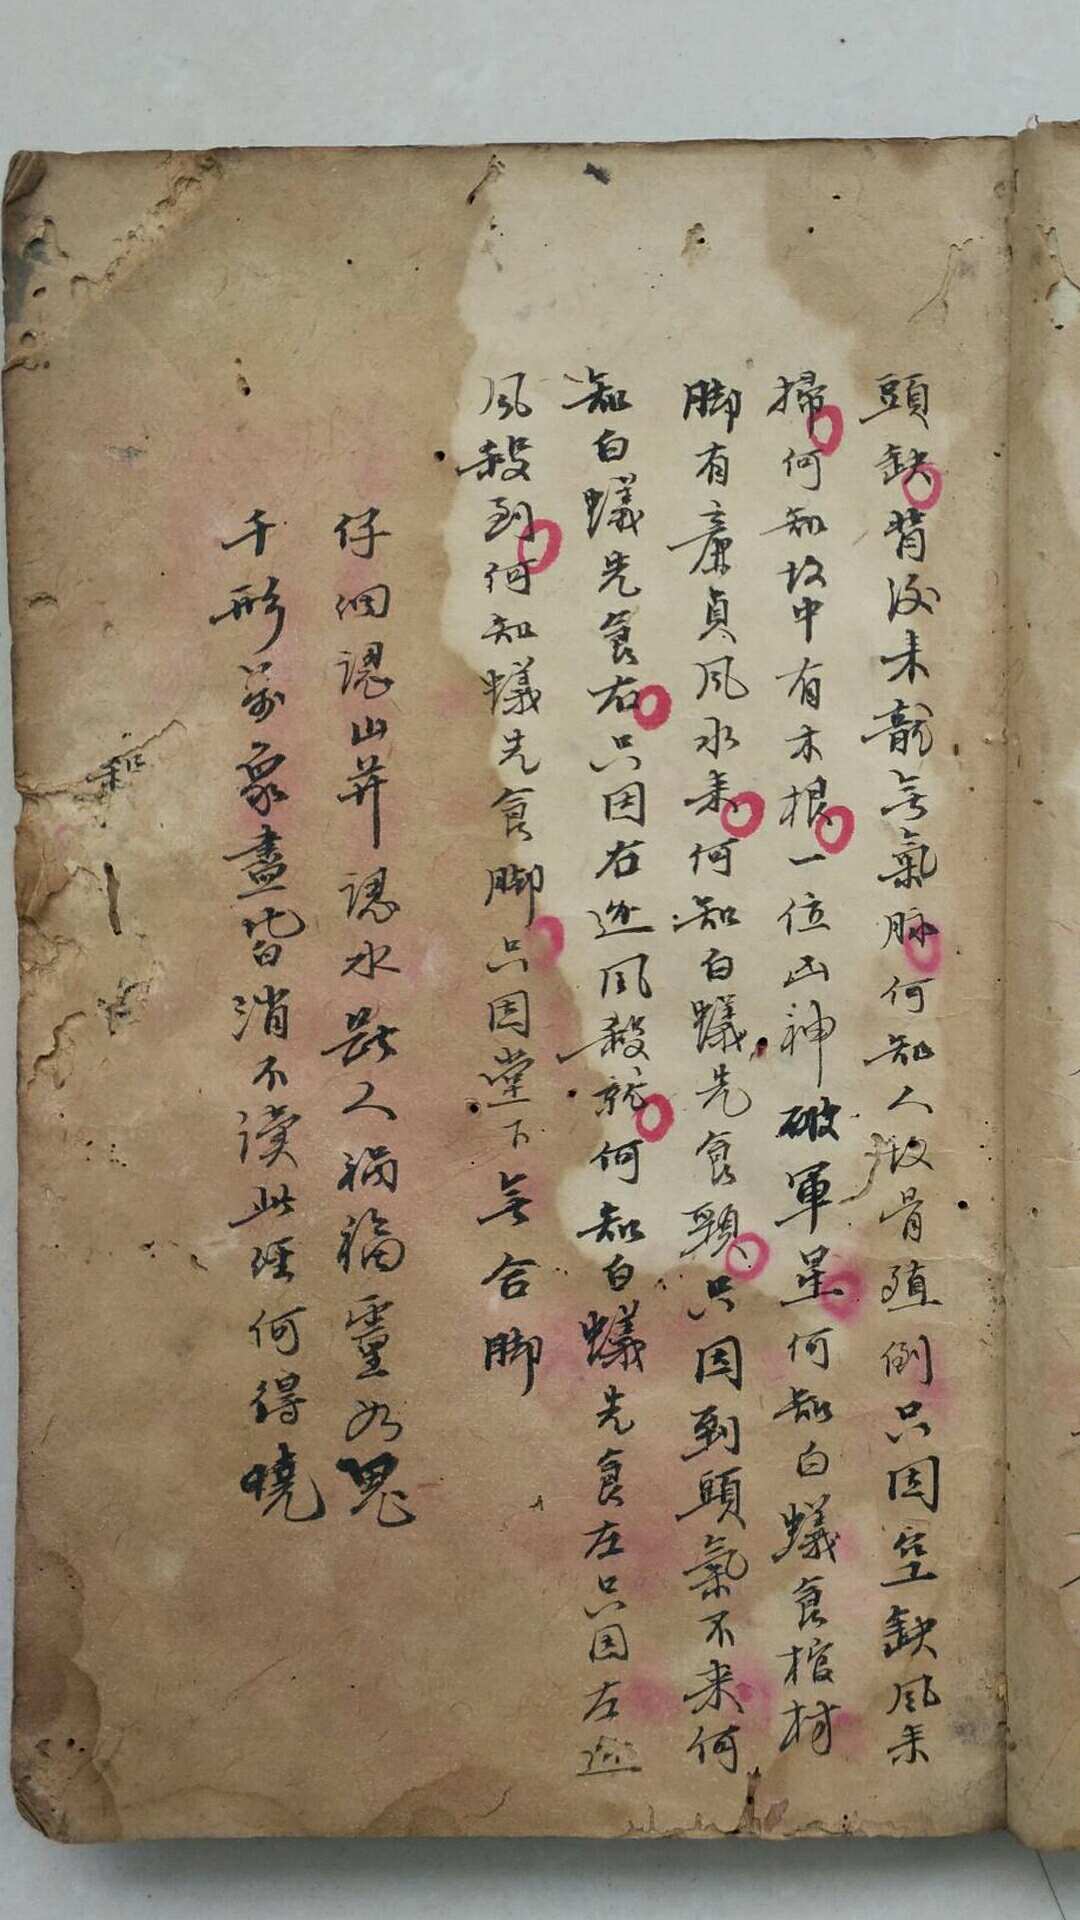 頭缺背後来龍無氣脉何知人敗骨殖倒只因空缺風来
掃何知坟中有木根一位凶神破軍星何知白蟻食棺材
脚有亷貞風水来何知白蟻先食頸只因到頭氣不来何
知白蟻先食右只因右边風殺就何知白蟻先食左只因左边
風殺到何知蟻先食脚只因堂下無合脚
仔细認山并認水断人禍福靈如鬼
千形萬象盡皆消不读此經何得曉